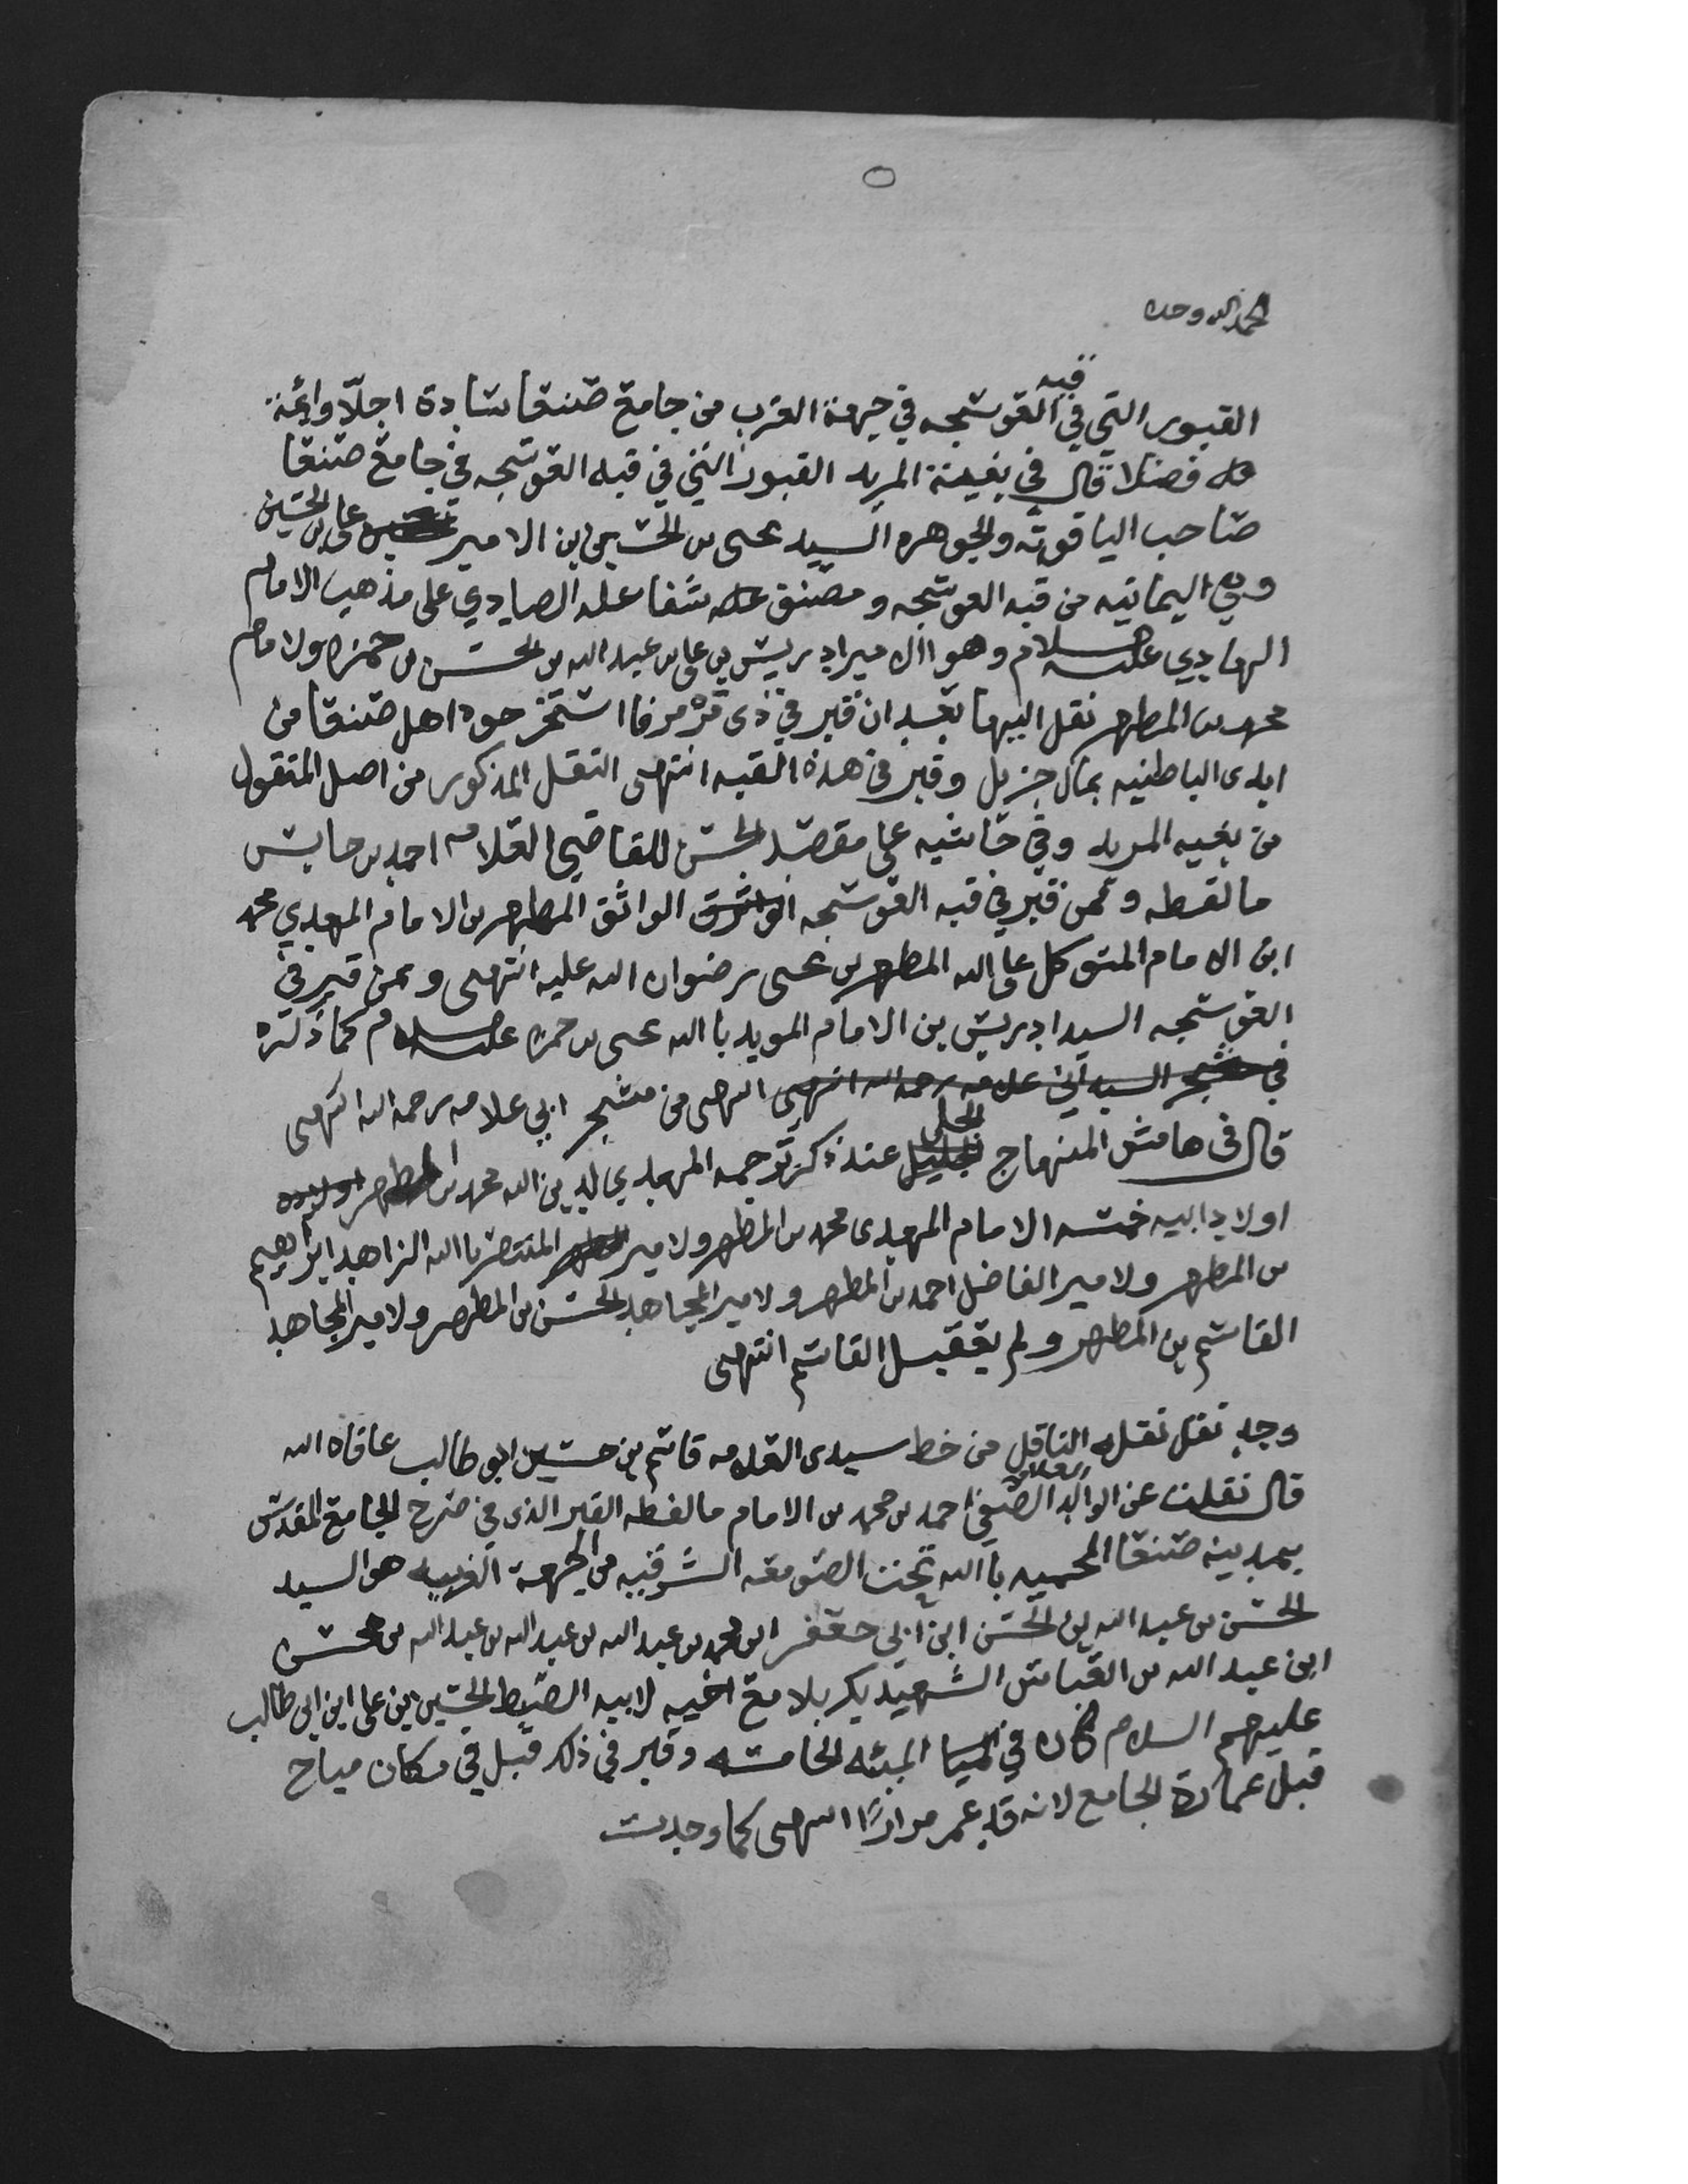 الحمد لله وحده
القبور التي في قبه العوسجه في جهة الغرب من جامع صنعا سادة اجلّا وائمة
فضلا قال في بغية المريد القبور التي في قبه العوسجه في جامع صنعا
صاحب الياقوته والجوهره السيد يحيى بن الحسين بن الامير علي بن الحسين
وهي اليمانيه من قبه العوسجه ومصنف شفا غلة الصادي على مذهب الامام
الهادي عليه السلام وهو الامير ادريس بن علي بن عبد الله بن الحسن بن حمزه والامام
محمد بن المطهر نقل اليها بعد ان قبر في ذي مرمر فاستخرجوه اهل صنعا من
ايدي الباطنيه بمال جزيل وقبر في هذه القبه انتهى النقل المذكور من اصل المنقول
من بغيه المريد وفي حاشيه على مقصد الحسن للقاضي العلامه احمد بن حابس
ما لفظه وممن قبر في قبه العوسجه الواثق المطهر بن الامام المهدي محمد
ابن الامام المتوكل على الله المطهر بن يحيى رضوان الله عليه انتهى وممن قبر في
العوسجه السيد ادريس بن الامام المويد بالله يحيى بن حمزه عليه السلام كما ذكره
في مشجر السيد ابي علامه رحمه الله انتهى انتهى من مشجر ابي علامه رحمه الله انتهى
قال في هامش المنهاج الجلي عند ذكر ترجمه المهدي لدين الله محمد بن المطهر اولاده
اولاد ابيه خمسه الامام المهدي محمد بن المطهر والامير المنتصر بالله الزاهد ابراهيم
بن المطهر والامير الفاضل احمد بن المطهر والامير المجاهد الحسن بن المطهر والامير المجاهد
القاسم بن المطهر ولم يعقب القاسم انتهى
وجد نقل نقله الناقل من خط سيدي العلامه قاسم بن حسين ابو طالب عافاه الله
قال نقلت عن الوالد العلامه الصفي احمد بن محمد بن الامام ما لفظه القبر الذي في صرح الجامع المقدس
بمدينه صنعا المحميه بالله تحت الصومعه الشرقيه من الجهة الغربيه هو السيد
الحسن بن عبد الله بن الحسن ابن ابي جعفر ابن محمد بن عبد الله بن عبد الله بن عبد الله بن الحسن
ابن عبد الله بن العباس الشهيد بكربلا مع اخيه لابيه السبط الحسين بن علي ابن ابي طالب
عليهم السلام كان في المئه الخامسه وقبر في ذلك قبل في مكان مباح
قبل عمارة الجامع لانه قد عمر مرارًا انتهى كما وجدت